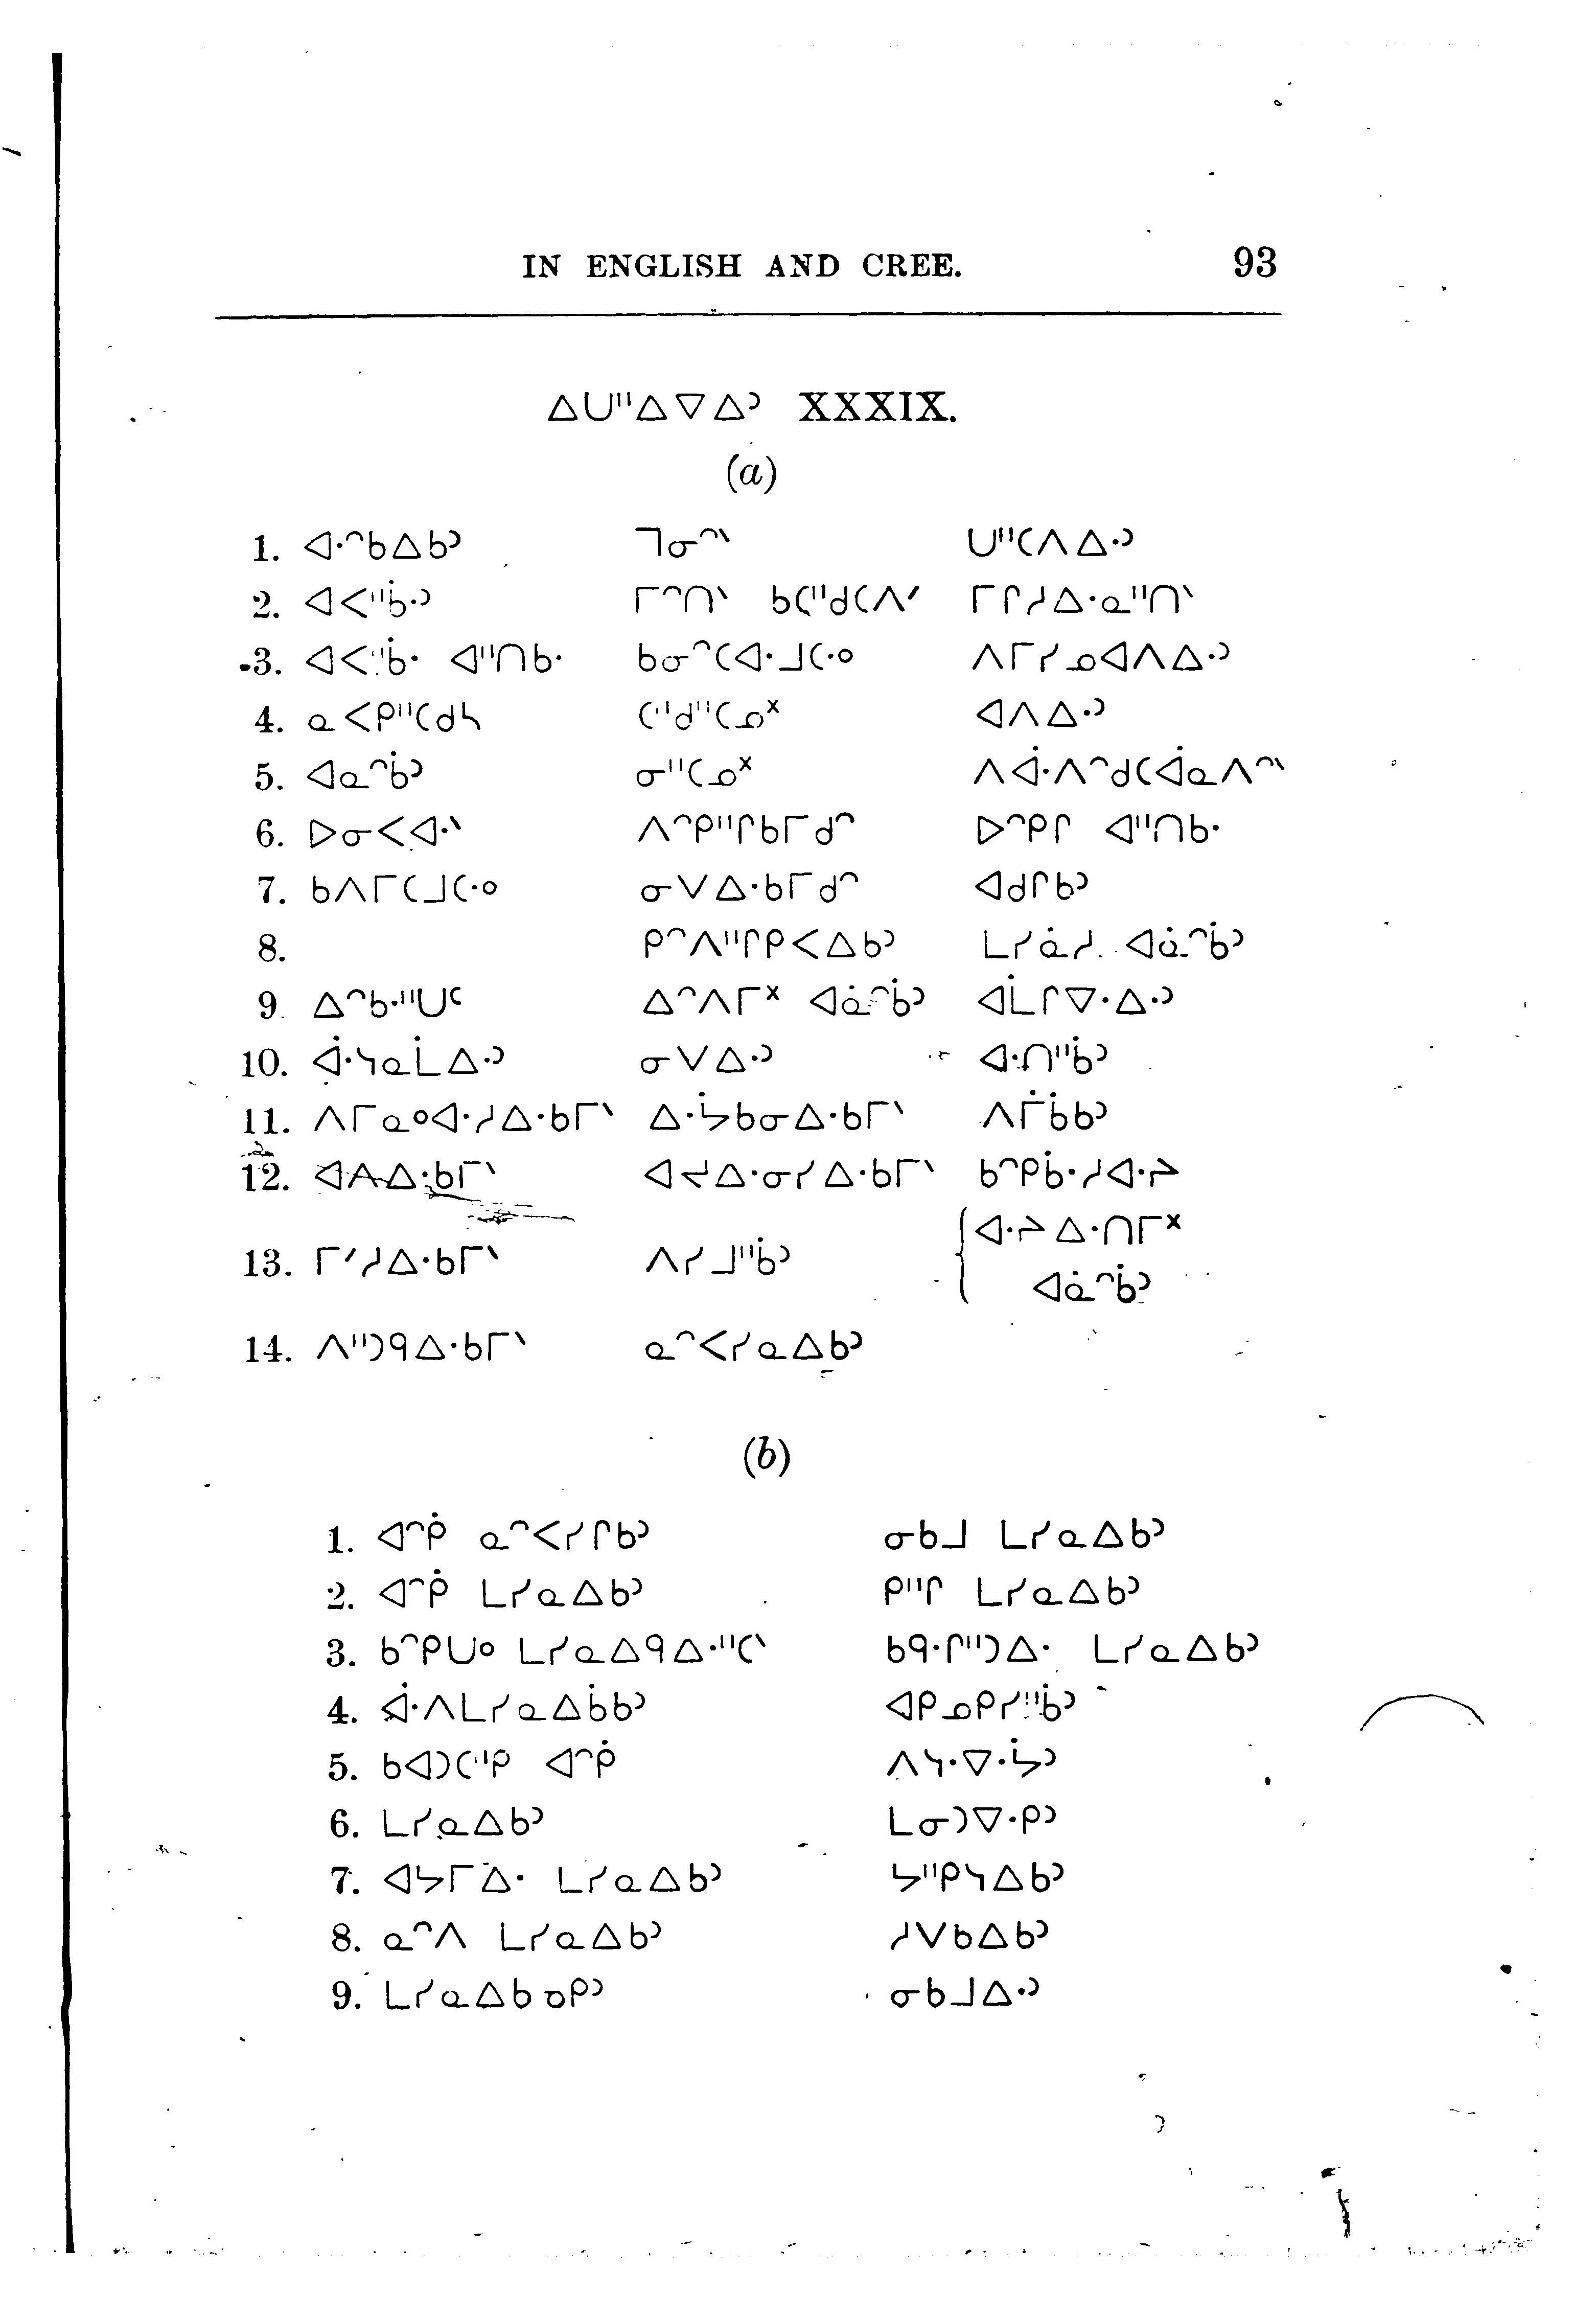 IN ENGLISH AND CREE. 93
ᐃᑌᐦᐃᐁᐃᐣ XXXIX.
(a)
1. ᐊᐧᐢᑲᐃᑲᐣ ᒣᓂᐢᐠ ᑌᐦᑕᐱᐃᐧᐣ
2. ᐊᐸᐦᑳᐧᐣ ᒥᐢᑎᐠ ᑲᑕᐦᑯᑕᐱᐟ ᒥᒋᓱᐃᐧᓇᐦᑎᐠ
3. ᐊᐸᐦᑳᐧ ᐊᐦᑎᑲᐧ ᑲᓂᐢᑕᐊᐧᒧᑕᐧᐤ ᐱᒥᓯᓄᐊᐱᐃᐧᐣ
4. ᓇᐸᑭᐦᑕᑯᓴ ᑕᐦᑯᐦᑕᓄᕽ ᐊᐱᐃᐧᐣ
5. ᐊᓇᐢᑳᐣ ᓂᐦᑕᓄᕽ ᐱᐚᐱᐢᑯᑕᐋᓇᐱᐢᐠ
6. ᐅᓂᐸᐊᐧᐠ ᐱᐢᑭᐦᒋᑲᒥᑯᐢ ᐅᐢᑭᒋ ᐊᐦᑎᑲᐧ
7. ᑲᐱᒥᑕᒧᑕᐧᐤ ᓂᐯᐃᐧᑲᒥᑯᐢ ᐊᑯᒋᑲᐣ
8. ᑭᐢᐱᐦᒋᑭᐸᐃᑲᐣ ᒪᓯᓈᓱ ᐊᓈᐢᑳᐣ
9. ᐃᐢᑲᐧᐦᑌᒼ ᐃᐢᐱᒥᕽ ᐊᓈᐢᑳᐣ ᐊᒫᒋᐁᐧᐃᐧᐣ
10. ᐚᓭᓇᒫᐃᐧᐣ ᓂᐯᐃᐧᐣ ᐊᐧᑎᐦᑳᐣ
11. ᐱᒥᓇᐤᐊᐧᓱᐃᐧᑲᒥᐠ ᐃᐧᔮᑲᓂᐃᐧᑲᒥᐠ ᐱᒦᑳᑲᐣ
12. ᐊᐱᐃᐧᑲᒥᐠ ᐊᔪᐃᐧᓂᓯᐃᐧᑲᒥᐠ ᑲᐢᑭᑳᐧᓱᐊᐧᔨ
13. ᒥᐟᓱᐃᐧᑲᒥᐠ ᐱᓯᒧᐦᑳᐣ ᐊᐧᔨᐃᐧᑎᒥᕽ
ᐊᓈᐢᑳᐣ
14. ᐱᐦᑐᑫᐃᐧᑲᒥᐠ ᓇᐢᐸᓯᓇᐃᑲᐣ
(b)
1. ᐊᐢᑮ ᓇᐢᐸᓯᒋᑲᐣ ᓂᑲᒧ ᒪᓯᓇᐃᑲᐣ
2. ᐊᐢᑮ ᒪᓯᓇᐃᑲᐣ ᑭᐦᒋ ᒪᓯᓇᐃᑲᐣ
3. ᑲᐢᑭᑌᐤ ᒪᓯᓇᐃᑫᐃᐧᐦᑕᐠ ᑲᑫᐧᒋᐦᑐᐃᐧ ᒪᓯᓇᐃᑲᐣ
4. ᐚᐱᒪᓯᓇᐃᑳᑲᐣ ᐊᑭᓄᑭᓯᐦᑳᐣ
5. ᑲᐊᑐᑕᐦᑭ ᐊᐢᑮ ᐱᓭᐧᐁᐧᔮᐣ
6. ᒪᓯᓇᐃᑲᐣ ᒪᓂᑐᐁᐧᑭᐣ
7. ᐊᔭᒥᐃᐧ ᒪᓯᓇᐃᑲᐣ ᔭᐦᑭᓭᐃᑲᐣ
8. ᓇᐢᐱ ᒪᓯᓇᐃᑲᐣ ᓱᐯᑲᐃᑲᐣ
9. ᒪᓯᓇᐃᑲᓀᑭᐣ ᓂᑲᒧᐃᐧᐣ